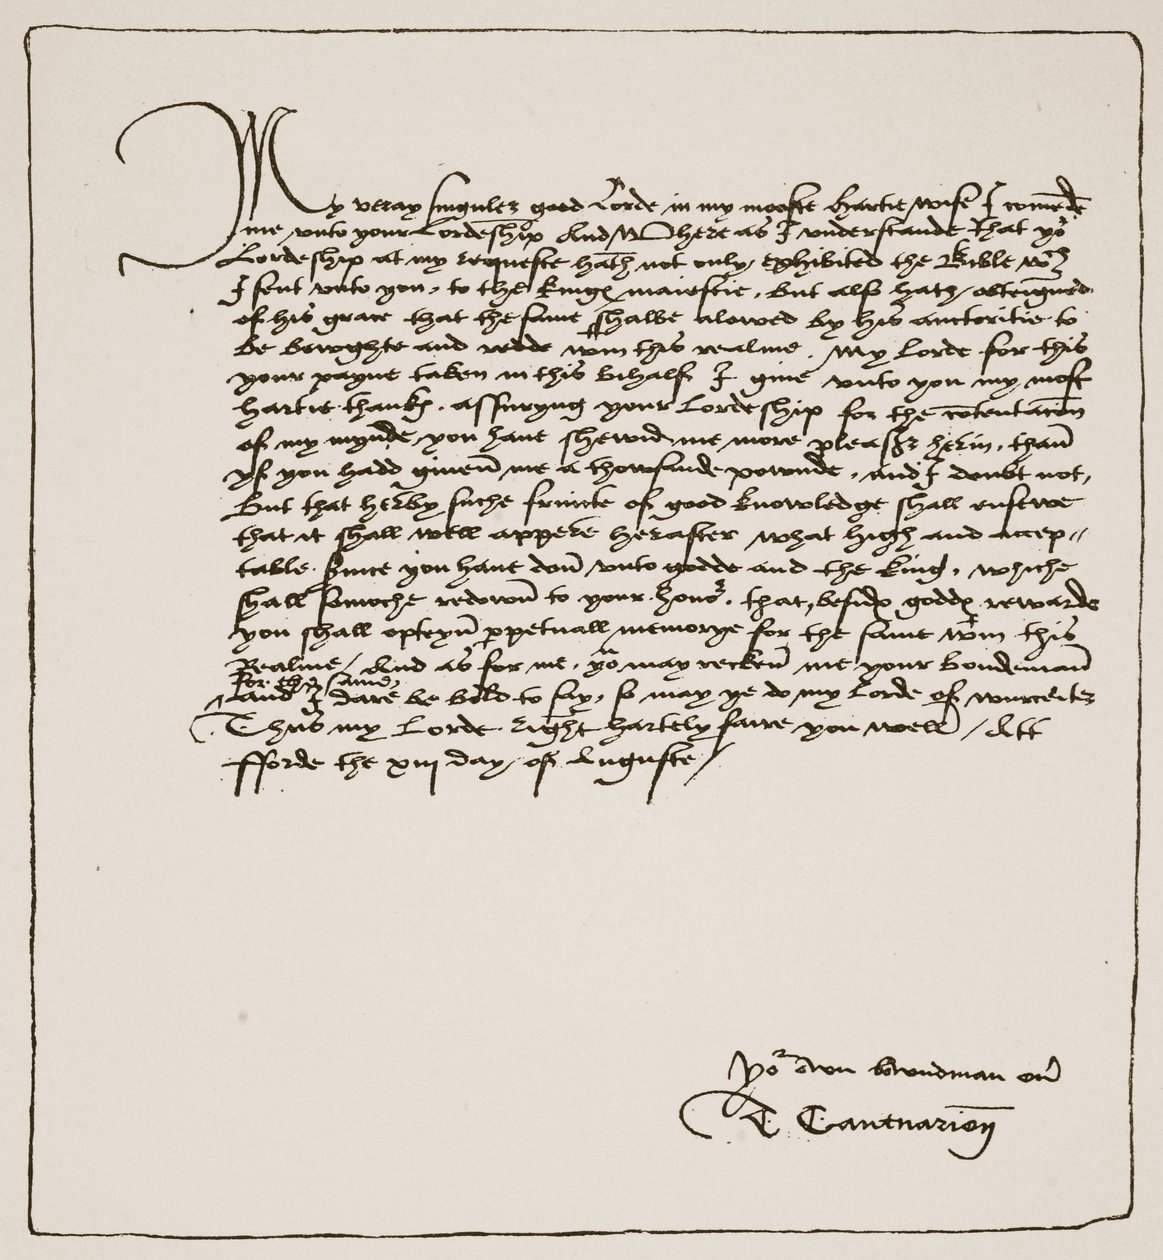 My veray singuler good Lorde in my mooste hartie wise I comēde
me vnto your Lordeship And Where as I vnderstande that yoʳ
Lordeship at my requeste hath not only exhibited the Bible wᶜʰ
I sent vnto you, to the kinges maiestie, but also hath obteigned
of his grace that the same shalbe alowed by his auctoritie to
be bowghte and redde wᵗin this realme. My Lorde for this
your payne taken in this bihalf I give vnto you my most
hartie thankes, assuryng your Lordeship for the cōtentacion
of my mynde, you have shewid me more pleasʳ herin, than
yf you hadd given me a thowsande pownde, and I doubt not,
But that herby suche fruicte of good knowledge shall ensewe
that it shall well appere herafter what high and accep-
table you have don vnto godde and the king, whiche
shall somoche redown to your honoʳ, that, besides goddes rewarde
you shall opteyn ppetuall memorye for the same wᵗin this
Realme / And as for me, yoᵘ may recken me your bondeman
for the same,
And I dare be bold to say, so may ye do my Lorde of wurceiter
Thus my Lorde right hartely faire you well / Att
fforde the xiij day of Auguste /
Yoʳ own bowndman
T. Cantuarieñ